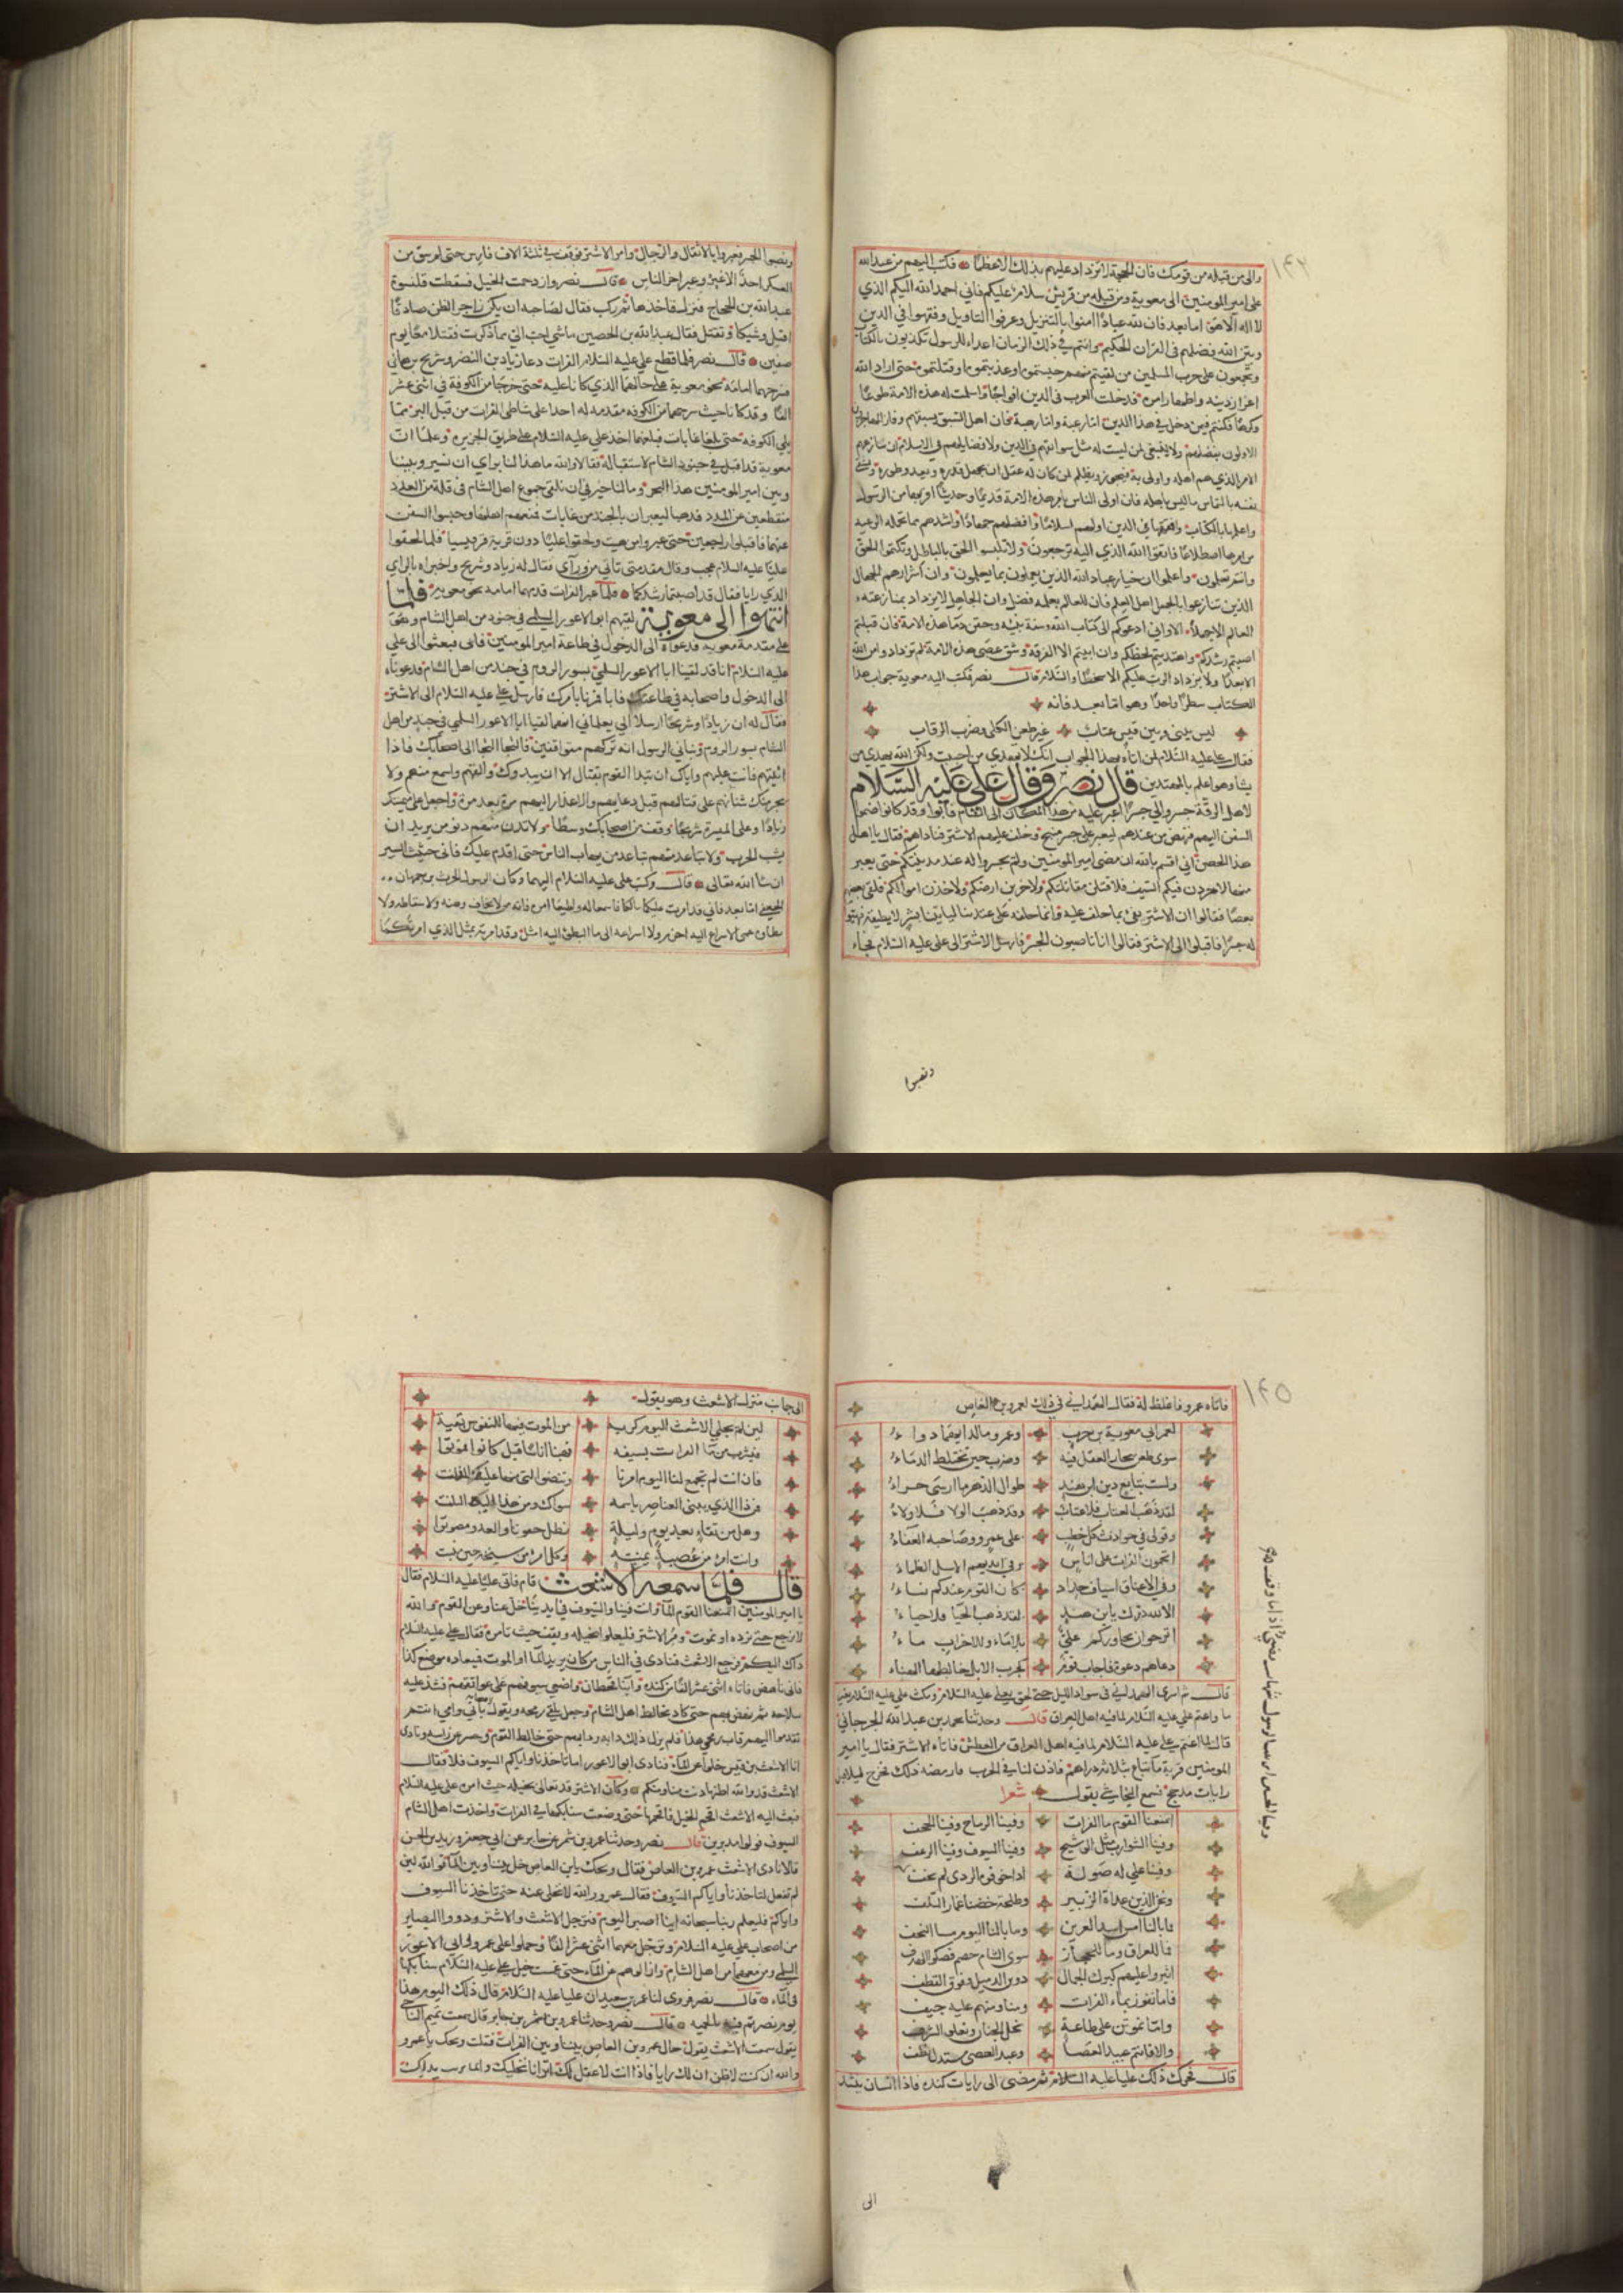 ١٤٣
والى من قبله من قومك فان الحجة لا تزداد عليهم بذلك الا عظما فكتب اليهم من عبد الله
علي امير المومنين الى معوية ومن قبله من قريش سلام عليكم فاني احمد الله اليكم الذي
لا اله الا هو اما بعد فان لله عبادا امنوا بالتنزيل وعرفوا التاويل وفقهوا في الدين
وبين الله فضلهم في القران الحكيم وانتم في ذلك الزمان اعداء للرسول تكذبون بالكتاب
وتجمعون على حرب المسلمين من لقيتم منهم حبستموه او عذبتموه او قتلتموه حتى اراد الله
اعزاز دينه واظهار امره فدخلت العرب في الدين افواجا واسلمت له هذه الامة طوعا
وكرها فكنتم فيمن دخل في هذا الدين اما رغبة واما رهبة على حين فاز اهل السبق بسبقهم وفاز المهاجرون
الاولون بفضلهم ولا ينبغي لمن ليست له مثل سوابقهم في الدين ولا فضايلهم في الاسلام ان ينازعهم
الامر الذي هم اهله واولى به فيجور ويظلم ولمن كان له عقل ان يجهل قدره ويعدو طوره ويشقي
نفسه بالتماس ما ليس باهله فان اولى الناس بامر هذه الامة قديما وحديثا اقربها من الرسول
واعلمها بالكتاب وافقهها في الدين اولهم اسلاما وافضلهم جهادا واشدهم بما تحمله الرعية
من امرها اضطلاعا فاتقوا الله الذي اليه ترجعون ولا تلبسوا الحق بالباطل وتكتموا الحق
وانتم تعلمون واعلموا ان خيار عباد الله الذين يعملون بما يعلمون وان اشرارهم الجهال
الذين ينازعوا بالجهل اهل العلم فان للعالم بعلمه فضل وان الجاهل لا يزداد بمنازعته
العالم الا جهلا الا واني ادعوكم الى كتاب الله وسنة نبيه وحقن دما هذه الامة فان قبلتم
اصبتم رشدكم واهتديتم لحظكم وان ابيتم الا الفرقة وشق عصى هذه الامة لم تزداد وا من الله
الا بعدا ولا يزداد الرب عليكم الا سخطا والسلام قال نصر فكتب اليه معوية جواب هذا
الكتاب سطرا واحدا وهو اما بعد فانه
ليس بيني وبين قيس عتاب غير طعن الكلى وضرب الرقاب
فقال علي عليه السلام لما اتاه بهذا الجواب انك لا تهدي من احببت ولكن الله يهدي من
يشا وهو اعلم بالمهتدين قال نصر وقال علي عليه السلام
لاهل الرقة جسروا لي جسرا اعبر عليه من هذا المكان الى الشام فابوا وقد كانوا ضموا
السفن اليهم فنهض من عندهم ليعبر على جسر منبج وخلف عليهم الاشتر فناداهم فقال يا اهل
هذا الحصن اني اقسم بالله ان مضى امير المومنين ولم تجسروا له عند مدينتكم حتى يعبر
منها لاجردن فيكم السيف فلاقتلن مقاتلكم ولاخربن ارضكم ولاخذن اموالكم فلقي بعضهم
بعضا فقالوا ان الاشتر يفي بما حلف عليه
له جسرا فاقبلوا الى الاشتر فقالوا انا ناصبون الجسر فارسل الاشتر الى علي عليه السلام فجاء
ونصبوا
ونصبوا الجسر فعبروا بالاثقال والرجال وامر الاشتر فوقف في ثلثة الاف فارس حتى لم يبق من
العسكر احد الا عبر وعبر اخر الناس قال نصر وازدحمت الخيل فسقطت قلنسوة
عبد الله بن الحجاج فنزل فاخذها ثم ركب فقال لصاحبه ان يكن زاجر الظن صادقا
اقتل وشيكا وتقتل فقال عبد الله بن الحصين ما شي احب الي مما ذكرت فقتلا معا يوم
صفين قال نصر فلما قطع علي عليه السلام الفرات دعا زياد بن النضر وشريح بن هاني
فسرحهما امامه نحو معوية على حالهما الذي كانا عليه حتى خرجا من الكوفة في اثنى عشر
الفا وقد كانا حيث سرحهما من الكوفة مقدمة له اخذا على شاطي الفرات من قبل البر مما
يلي الكوفة حتى بلغا عانات فبلغهما اخذ علي عليه السلام على طريق الجزيرة وعلما ان
معوية قد اقبل في جنود الشام لاستقباله فقالا والله ما هذا لنا براي ان نسير وبيننا
وبين امير المومنين هذا البحر وما لنا خير في ان نلقى جموع اهل الشام في قلة من العدد
منقطعين عن المدد فذهبا ليعبرا من عانات فمنعهم اهلها وحبسوا السفن
عنهما فاقبلوا راجعين حتى عبروا من هيت ولحقوا عليا دون قرية قرقيسيا فلما لحقوا
عليا عليه السلام عجب وقال مقدمتي تاتي من ورائي فقال له زياد وشريح واخبراه بالراي
الذي رايا فقال قد اصبتما رشدكما فلما عبر الفرات قدمهما امامه نحو معوية فلما
انتهوا الى معوية لقيهم ابو الاعور السلمي في جنود من اهل الشام وهو
على مقدمة معوية فدعواه الى الدخول في طاعة امير المومنين فابى فبعثوا الى علي
عليه السلام انا قد لقينا ابا الاعور السلمي بسور الروم في جند من اهل الشام فدعوناه
الى الدخول واصحابه في طاعتك فابا فمرنا بامرك فارسل علي عليه السلام الى الاشتر
فقال له ان زيادا وشريحا ارسلا الي يعلماني انهما لقيا ابا الاعور السلمي في جند من اهل
الشام بسور الروم ونباني الرسول انه تركهم متواقفين فالنجا النجا الى اصحابك فاذا
اتيتهم فانت عليهم واياك ان تبدا القوم بقتال الا ان يبدوك والقهم واسمع منهم ولا
يجرمنك شنانهم على قتالهم قبل دعايهم والاعذار اليهم مرة بعد مرة واجعل على ميمنتك
زيادا وعلى الميسرة شريحا وقف من اصحابك وسطا ولا تدن منهم دنو من يريد ان
ينشب الحرب ولا تباعد منهم تباعد من يهاب الناس حتى اقدم عليك فاني حثيث السير
ان شا الله تعالى قال وكتب علي عليه السلام اليهما وكان الرسول الحرث بن جمهان
الجعفي اما بعد فاني قد امرت عليكما مالكا فاسمعا له واطيعا امره فانه من لا يخاف وهنه ولا سقاطه ولا
بطاوه عن ما الاسراع اليه احزم ولا اسراعه الى ما البطئ اليه امثل وقد امرته بمثل الذي امرتكما
١٤٥
فاتاه عمرو فاغلظ له فقال الهمداني في ذلك لعمرو بن العاص
لعمر ابي معوية بن حرب وعمرو ما لدايهما دواء
سوى طعن يحار العقل فيه وضرب حين تختلط الدماء
ولست بتابع دين ابن هند طوال الدهر ما ارسى حراء
لقد ذهب العتاب فلا عتاب وقد ذهب الولا فلا ولاء
وقولي في حوادث كل خطب على عمرو وصاحبه العفاء
اتحمون الفرات على اناس وفي ايديهم الاسل الظماء
وفي الاعناق اسياف حداد كان القوم عندكم نساء
الا لله درك يا بن هند لقد ذهب الحيا فلا حياء
اترجو ان يجاوركم علي بلا ماء وللاحزاب ماء
دعاهم دعوة فاجاب قوم كجرب الابل خالطها الهناء
قال ثم سرى الهمداني في سواد الليل حتى لحق بعلي عليه السلام ومكث علي عليه السلام بغير
ماء واغتم علي عليه السلام لما فيه اهل العراق قال وحدثنا محمد بن عبد الله الجرجاني
قال لما اغتم علي عليه السلام لما فيه اهل العراق من العطش فاتاه الاشتر فقال يا امير
رايات مذحج فسمع النجاشي يقول شعرا
ايمنعنا القوم ماء الفرات وفينا الرماح وفينا الحجف
وفينا الشوازب مثل الوشيج وفينا السيوف وفينا الزغف
وفينا علي له صولة اذا خوفوه الردى لم يخف
ونحن الذين غداة الزبير وطلحة خضنا غمار التلف
فما بالنا امس اسد العرين وما بالنا اليوم شاء النجف
فما للعراق وما للحجاز سوى الشام خصم فصكوا الهدف
وثوروا عليهم كبزل الجمال دوين الذميل وفوق القطف
فاما نفوز بماء الفرات ومنا ومنهم عليه جيف
واما نموتن على طاعة نحل الجنان ونعلو الشرف
والا فانتم عبيد العصا وعبد العصى مستذل نطف
قال فحرك ذلك عليا عليه السلام ثم مضى الى رايات كندة فاذا انسان ينشد
الى
الى جانب منزل الاشعث وهو يقول
لين لم يجلي الاشعث اليوم كربة من الموت فيها للنفوس بقية
فنشرب من ماء الفرات بسيفه فهبنا اناسا قبل كانوا فموتوا
فان انت لم تجمع لنا اليوم امرنا
فمن ذا الذي يثني الخناصر باسمه سواك ومن هذا اليه التلفت
وهل من بقاء بعد يوم وليلة نظل خفوتا والعدو مصوت
وانت امرء من عصبة يمنية وكل امرء من سنخه حين ينبت
قال فلما سمعه الاشعث قام فاتى عليا عليه السلام فقال
يا امير المومنين ايمنعنا القوم الماء وانت فينا والسيوف في ايدينا خل عنا وعن القوم فوالله
لا نرجع حتى نرده او نموت ومر الاشتر فليعلو بخيله ويقف حيث تامره فقال علي عليه السلام
ذاك اليكم فرجع الاشعث فنادى في الناس من كان يريد الماء او الموت فميعاده موضع كذا
فاني ناهض فاتاه اثنى عشر الفا من كندة وافناء قحطان واضعي سيوفهم على عواتقهم فشد عليه
سلاحه ثم نهض بهم حتى كاد يخالط اهل الشام وجعل يلقي رمحه ويقول بابي وامي انتم
تقدموا اليهم قاب رمحي هذا فلم يزل ذلك دابه ودابهم حتى خالط القوم وحسر عن راسه ونادى
انا الاشعث بن قيس خلوا عن الماء فنادى ابو الاعور اما حتى تاخذنا واياكم السيوف فلا فقال
الاشعث قد والله اظنها دنت منا ومنكم وكان الاشتر قد تعالى بخيله حيث امره علي عليه السلام
فبعث اليه الاشعث اقحم الخيل فاقحمها حتى وضعت سنابكها في الفرات واخذت اهل الشام
السيوف فولوا مدبرين قال نصر وحدثنا عمرو بن شمر عن جابر عن ابي جعفر وزيد بن الحسن
قالا نادى الاشعث عمرو بن العاص فقال ويحك يا بن العاص خل بيننا وبين الماء فوالله لين
لم تفعل لتاخذنا واياكم السيوف فقال عمرو والله لا نخلي عنه حتى تاخذنا السيوف
واياكم فليعلم ربنا سبحانه اينا اصبر اليوم فترجل الاشعث والاشتر وذووا البصاير
من اصحاب علي عليه السلام وترجل معهما اثنى عشر الفا وحملوا على عمرو وابي الاعور
السلمي ومن معهما من اهل الشام وازالوهم عن الماء حتى غمست خيل علي عليه السلام سنابكها
في الماء قال نصر فروى لنا عمر بن سعيد ان عليا عليه السلام قال ذلك اليوم هذا
يوم نصرتم فيه بالحمية قال نصر وحدثنا عمرو بن شمر عن جابر قال سمعت تميم الناجي
يقول سمعت الاشعث يقول حال عمرو بن العاص بيننا وبين الفرات فقلت ويحك يا عمرو
والله ان كنت لاظن ان لك رايا فاذا انت لا عقل لك اترانا نخليك والماء تربت يداك